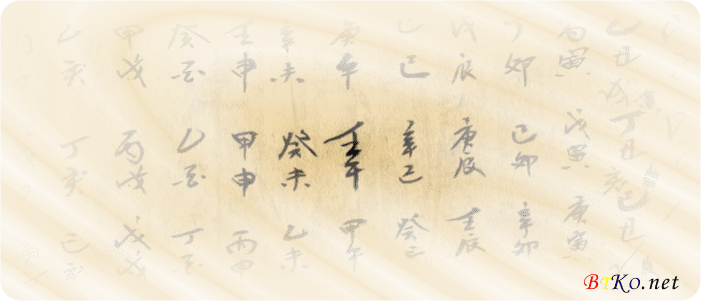 乙丑 丙寅 丁卯 戊辰 己巳 庚午 辛未 壬申 癸酉 甲戌 乙亥
丁丑 戊寅 己卯 庚辰 辛巳 壬午 癸未 甲申 乙酉 丙戌 丁亥
己丑 庚寅 辛卯 壬辰 癸巳 甲午 乙未 丙申 丁酉 戊戌 己亥
BTKO.net